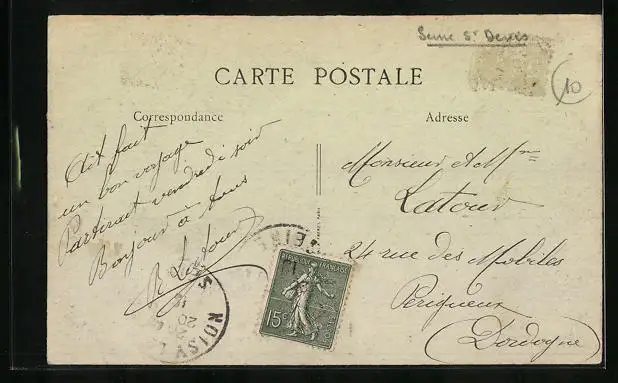 Seine St Denis
10
CARTE POSTALE
Correspondance
Adresse
Ait fait
un bon voyage
Partirait vendredi soir
Bonjour à tous
R Latour
Monsieur et Mme
Latour
24 rue des Mobiles
Périgueux
(Dordogne)
REPUBLIQUE FRANÇAISE
15c
NOISY